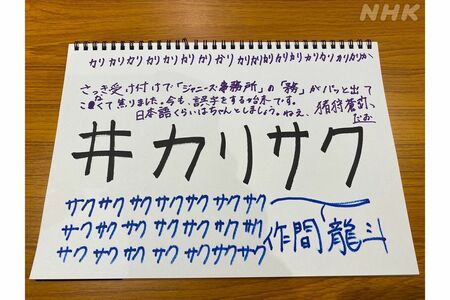 NHK
カリ カリ カリ カリ カリ カリ カリ カリ カリ カリ カリ カリ カリ カリ カリ
さっき受け付けで「ジャニーズ事務所」の「務」がパッと出て
こなくて焦りました。今も、誤字をする始末です。
日本語くらいはちゃんとしましょう。ねぇ、猪狩蒼弥、
#カリサク
サク サク サク サク サク サク サク
サク サク サク サク サク サク サク
サク サク サク サク サク サク サク
作間龍斗